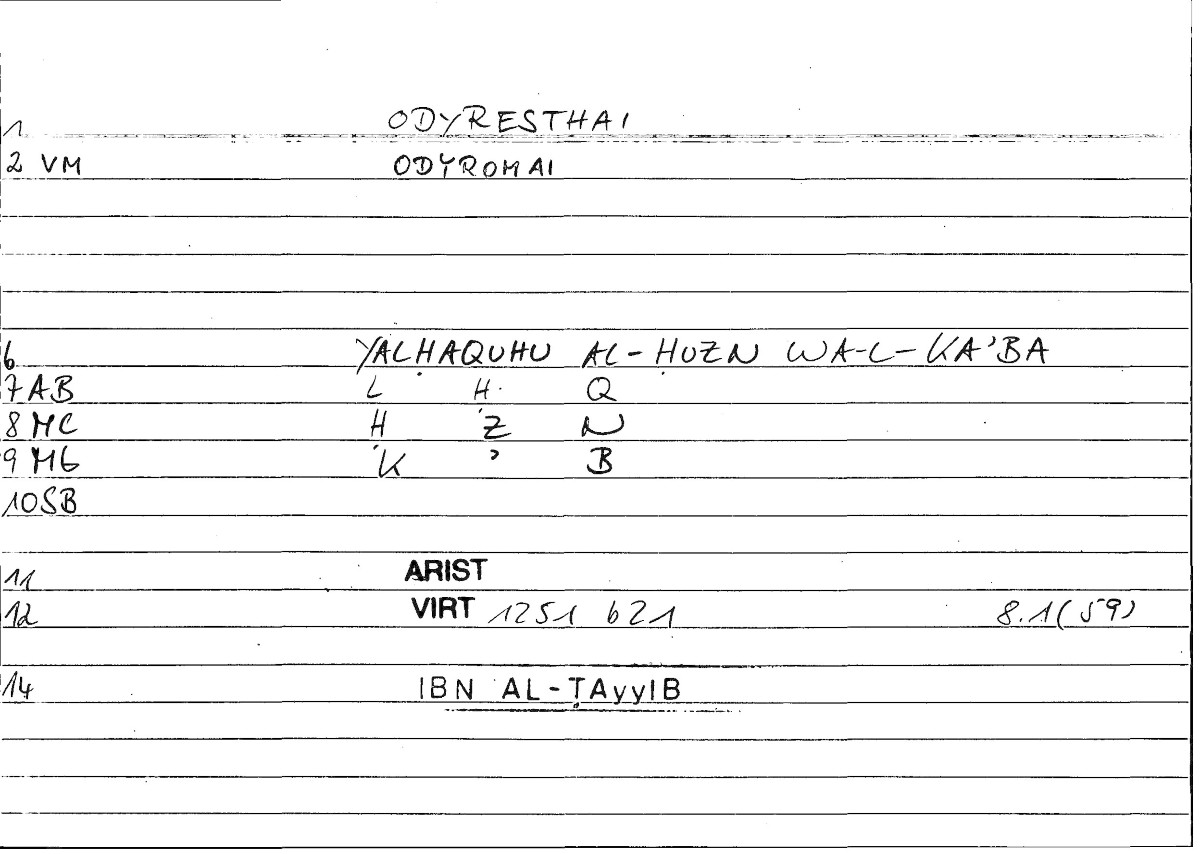 1 ODYRESTHAI
2 VM ODYROMAI
6 YALḤAQUHU AL-ḤUZN WA-L-KA'BA
7 AB L Ḥ Q
8 MC Ḥ Z N
9 MG K ' B
10 SB
11 ARIST
12 VIRT 1251 b21 8.1(59)
14 IBN AL-ṬAyyIB